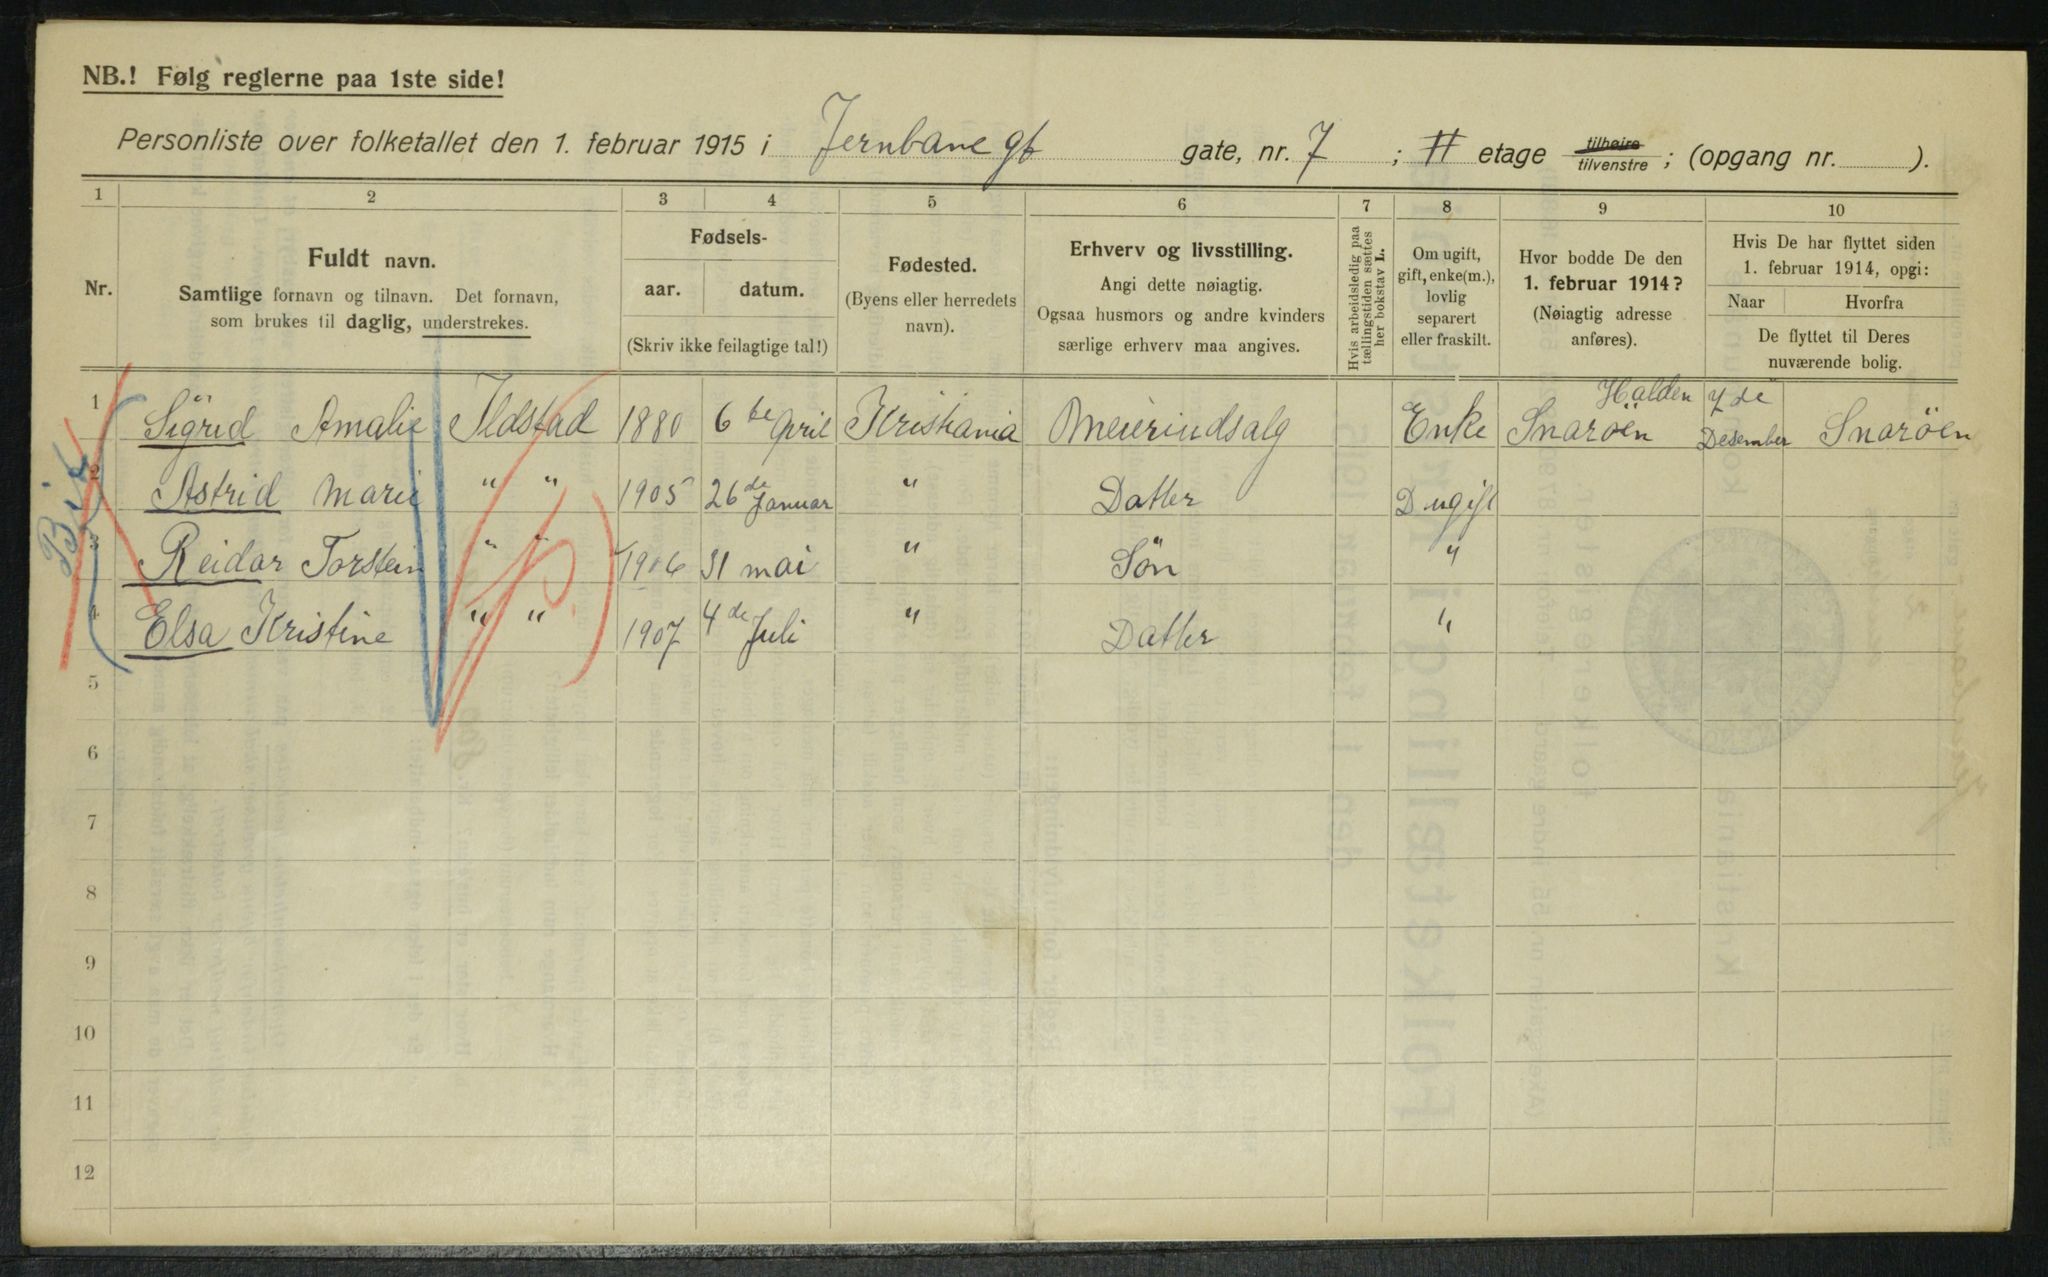 NB.! Følg reglerne paa 1ste side!
Personliste over folketallet den 1. februar 1915 i Jernbanegt gate, nr. 7 ; II etage tilhøire tilvenstre ; (opgang nr. ).
1 2 3 4 5 6 7 8 9 10
Nr.
Fuldt navn.
Samtlige fornavn og tilnavn. Det fornavn,
som brukes til daglig, understrekes.
Fødsels-
aar. datum.
(Skriv ikke feilagtige tal!)
Fødested.
(Byens eller herredets
navn).
Erhverv og livsstilling.
Angi dette nøiagtig.
Ogsaa husmors og andre kvinders
særlige erhverv maa angives.
Hvis arbeidsledig paa
tællingstiden sættes
her bokstav L.
Om ugift,
gift, enke(m.),
lovlig
separert
eller fraskilt.
Hvor bodde De den
1. februar 1914?
(Nøiagtig adresse
anføres).
Hvis De har flyttet siden
1. februar 1914, opgi:
Naar Hvorfra
De flyttet til Deres
nuværende bolig.
1 Sigrid Amalie Ildstad 1880 6te April Kristiania Meieriudsalg Enke Halden Snarøen 7de Desember Snarøen
2 Astrid Marie " " 1905 26de Januar " Datter D ugift
3 Reidar Torstein " " 1906 31 mai " Søn "
4 Elsa Kristine " " 1907 4de Juli " Datter "
5
6
7
8
9
10
11
12